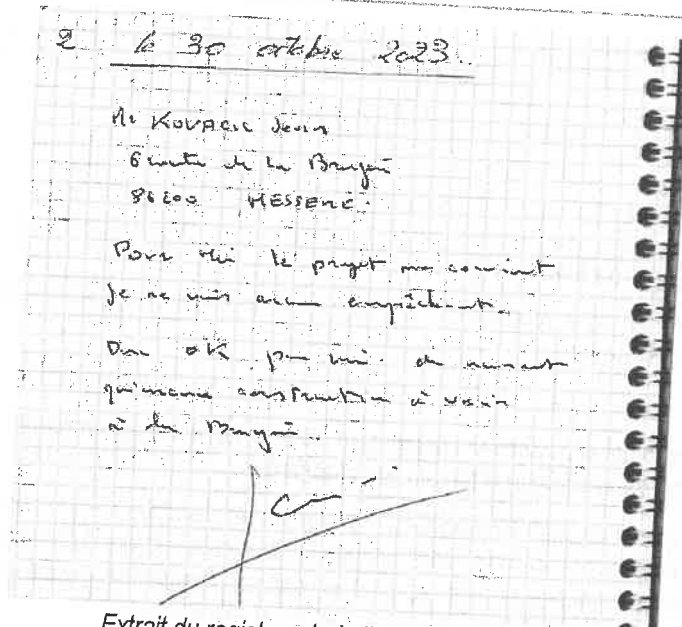 2 le 30 octobre 2023.
Mr KOVACIC
6 route de la
86200 MESSEMÉ.
Pour moi le projet me convient
je ne vois aucun empêchement.
Donc OK pour moi. du moment
qu'aucune construction à venir
à la
Extrait du registre